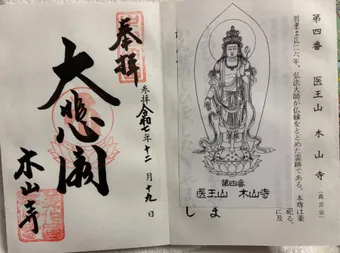 第四番 医王山 木山寺(真言宗)
六年、弘法大師が仏縁をとどめた霊跡である。本尊は薬
祀る。
に及
第四番
医王山 木山寺
ま
し
奉拝
参拝令和七年十二月十九日
大悲閣
木山寺